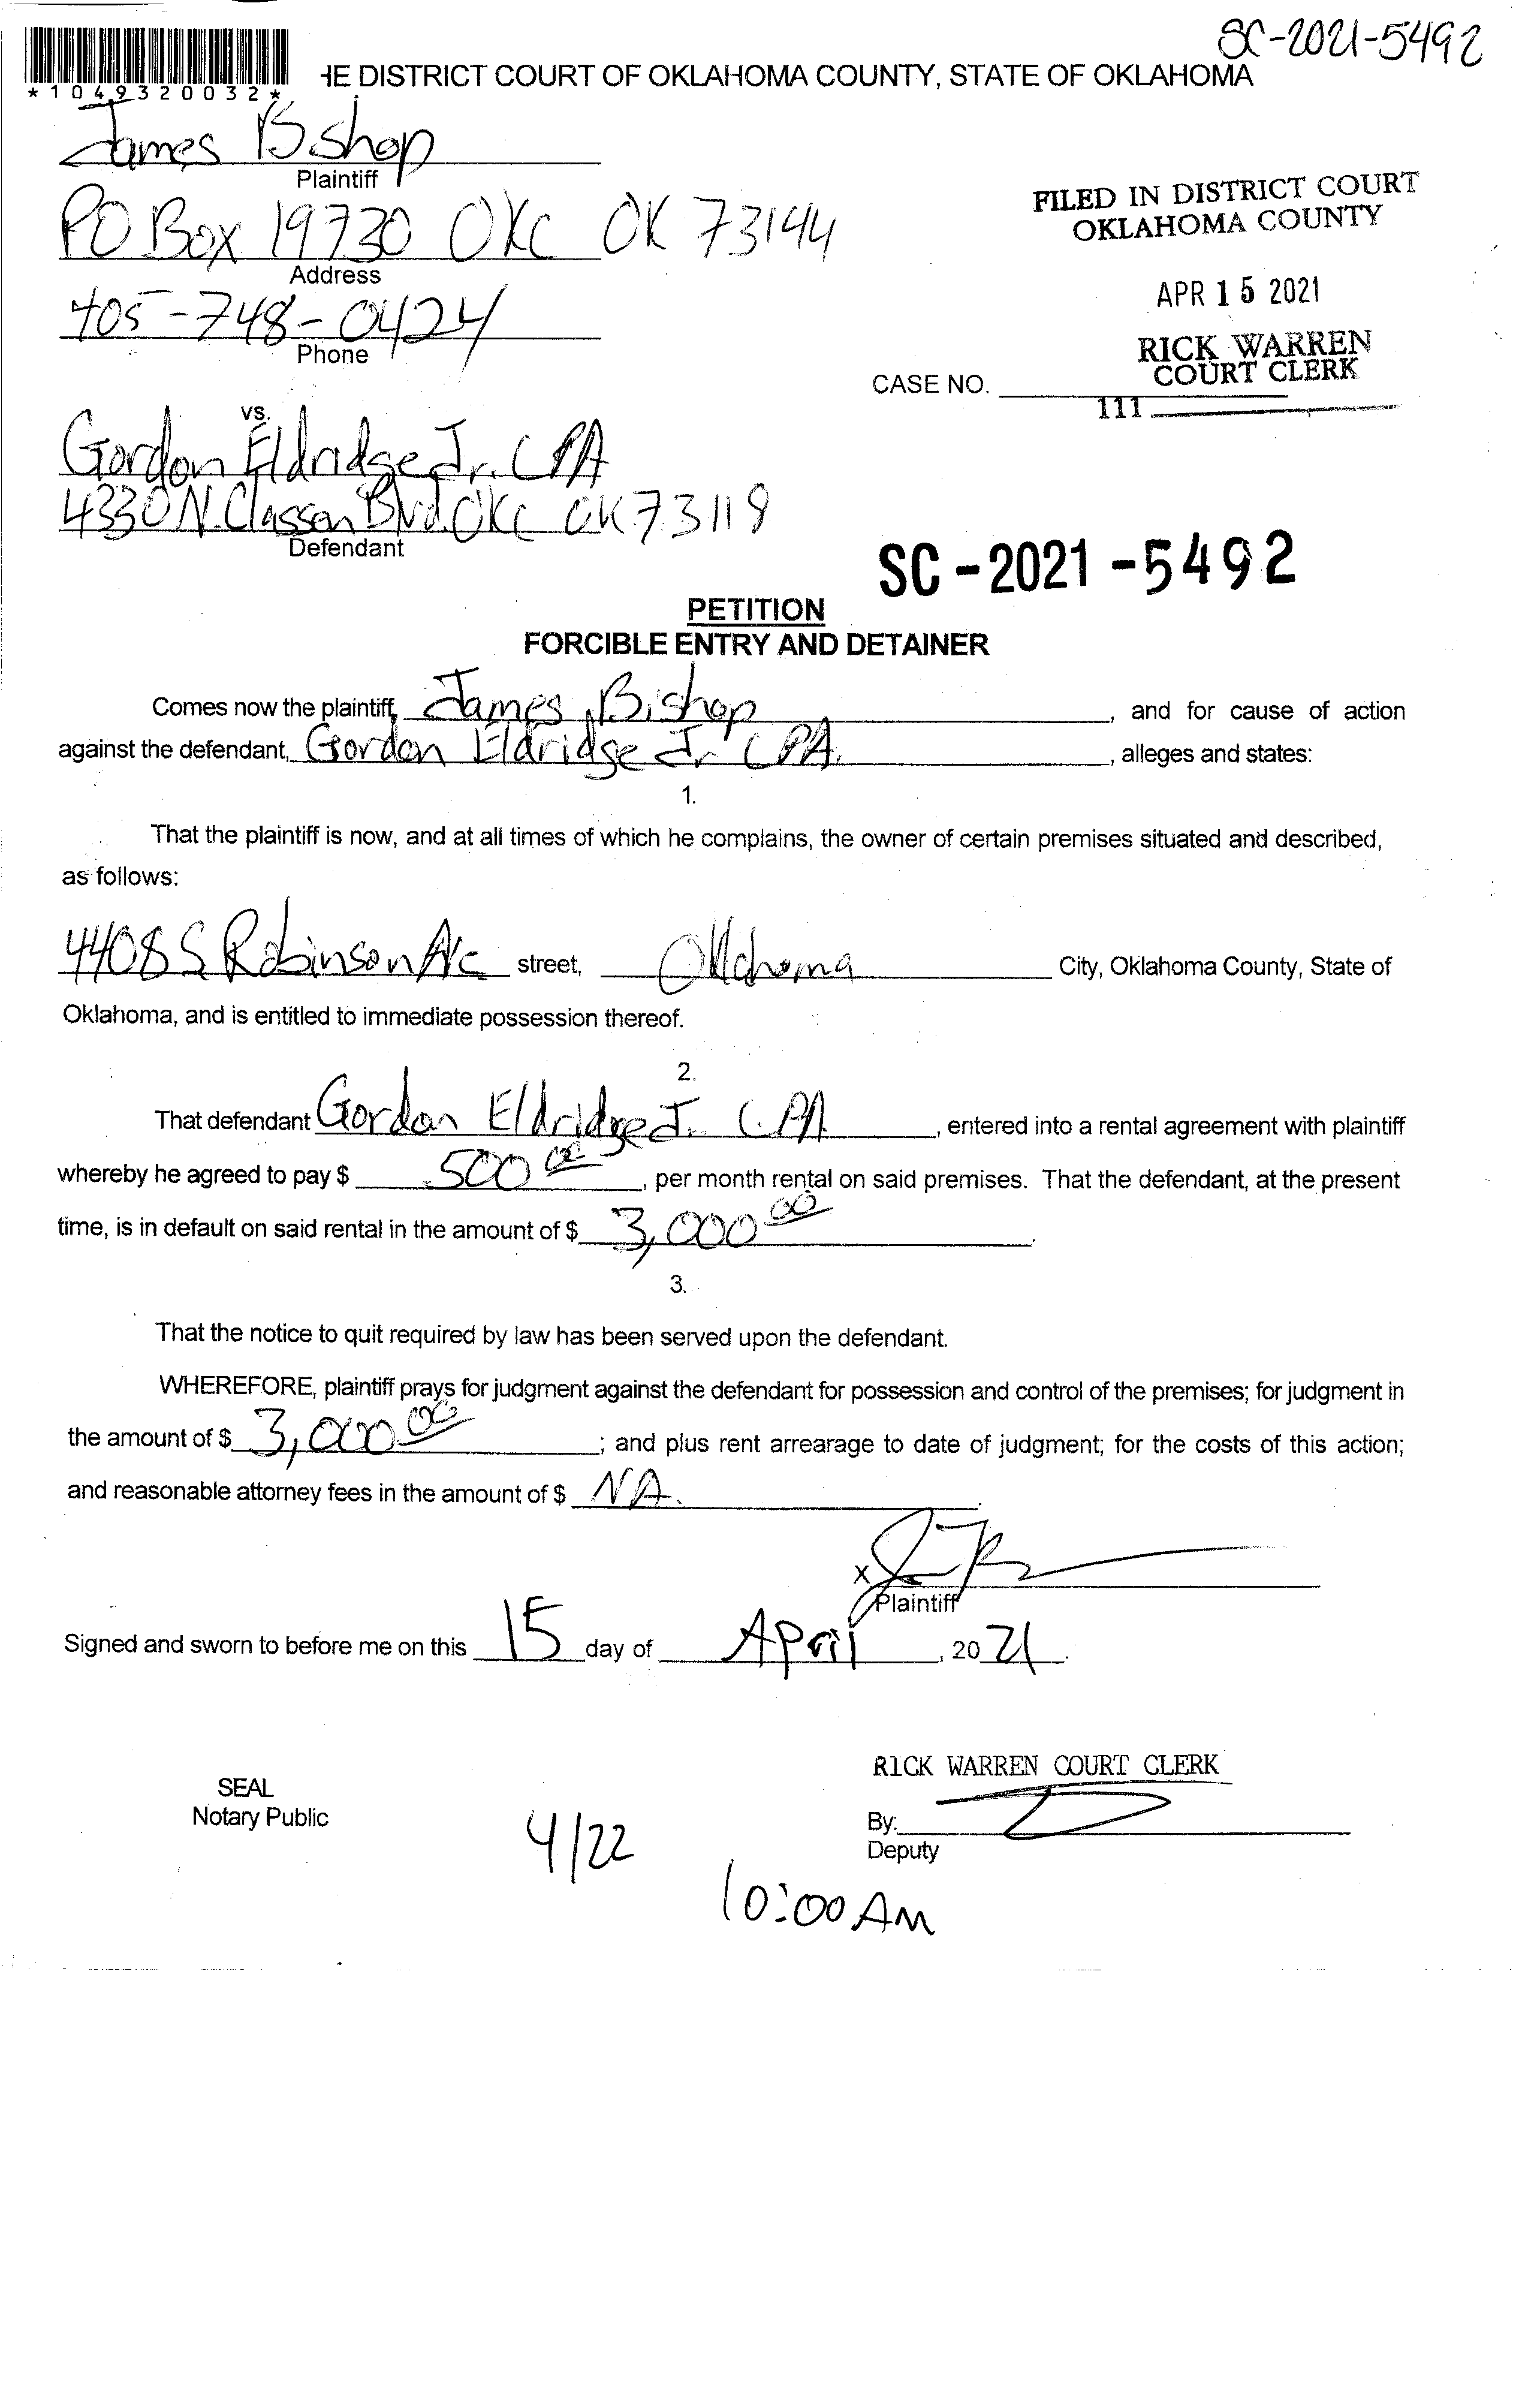 SC-2021-5492
*1049320032*
HE DISTRICT COURT OF OKLAHOMA COUNTY, STATE OF OKLAHOMA
James Bishop
Plaintiff
PO Box 19730 OKC OK 73144
Address
405-748-0424
Phone
FILED IN DISTRICT COURT
OKLAHOMA COUNTY
APR 15 2021
RICK WARREN
COURT CLERK
CASE NO.
111
vs.
Gordon Eldridge Jr. CPA
4330 N. Classen Blvd. OKC OK 73119
Defendant
SC-2021-5492
PETITION
FORCIBLE ENTRY AND DETAINER
Comes now the plaintiff, James Bishop, and for cause of action
against the defendant, Gordon Eldridge Jr CPA., alleges and states:
1.
That the plaintiff is now, and at all times of which he complains, the owner of certain premises situated and described,
as follows:
4408 S Robinson Ave street, Oklahoma City, Oklahoma County, State of
Oklahoma, and is entitled to immediate possession thereof.
2.
That defendant Gordon Eldridge Jr. CPA, entered into a rental agreement with plaintiff
whereby he agreed to pay $ 500 00, per month rental on said premises. That the defendant, at the present
time, is in default on said rental in the amount of $ 3,000 00.
3.
That the notice to quit required by law has been served upon the defendant.
WHEREFORE, plaintiff prays for judgment against the defendant for possession and control of the premises; for judgment in
the amount of $ 3,000 00; and plus rent arrearage to date of judgment; for the costs of this action;
and reasonable attorney fees in the amount of $ NA.
X
Plaintiff
Signed and sworn to before me on this 15 day of April, 20 21.
RICK WARREN COURT CLERK
SEAL
Notary Public
By:
Deputy
4/22
10:00 AM